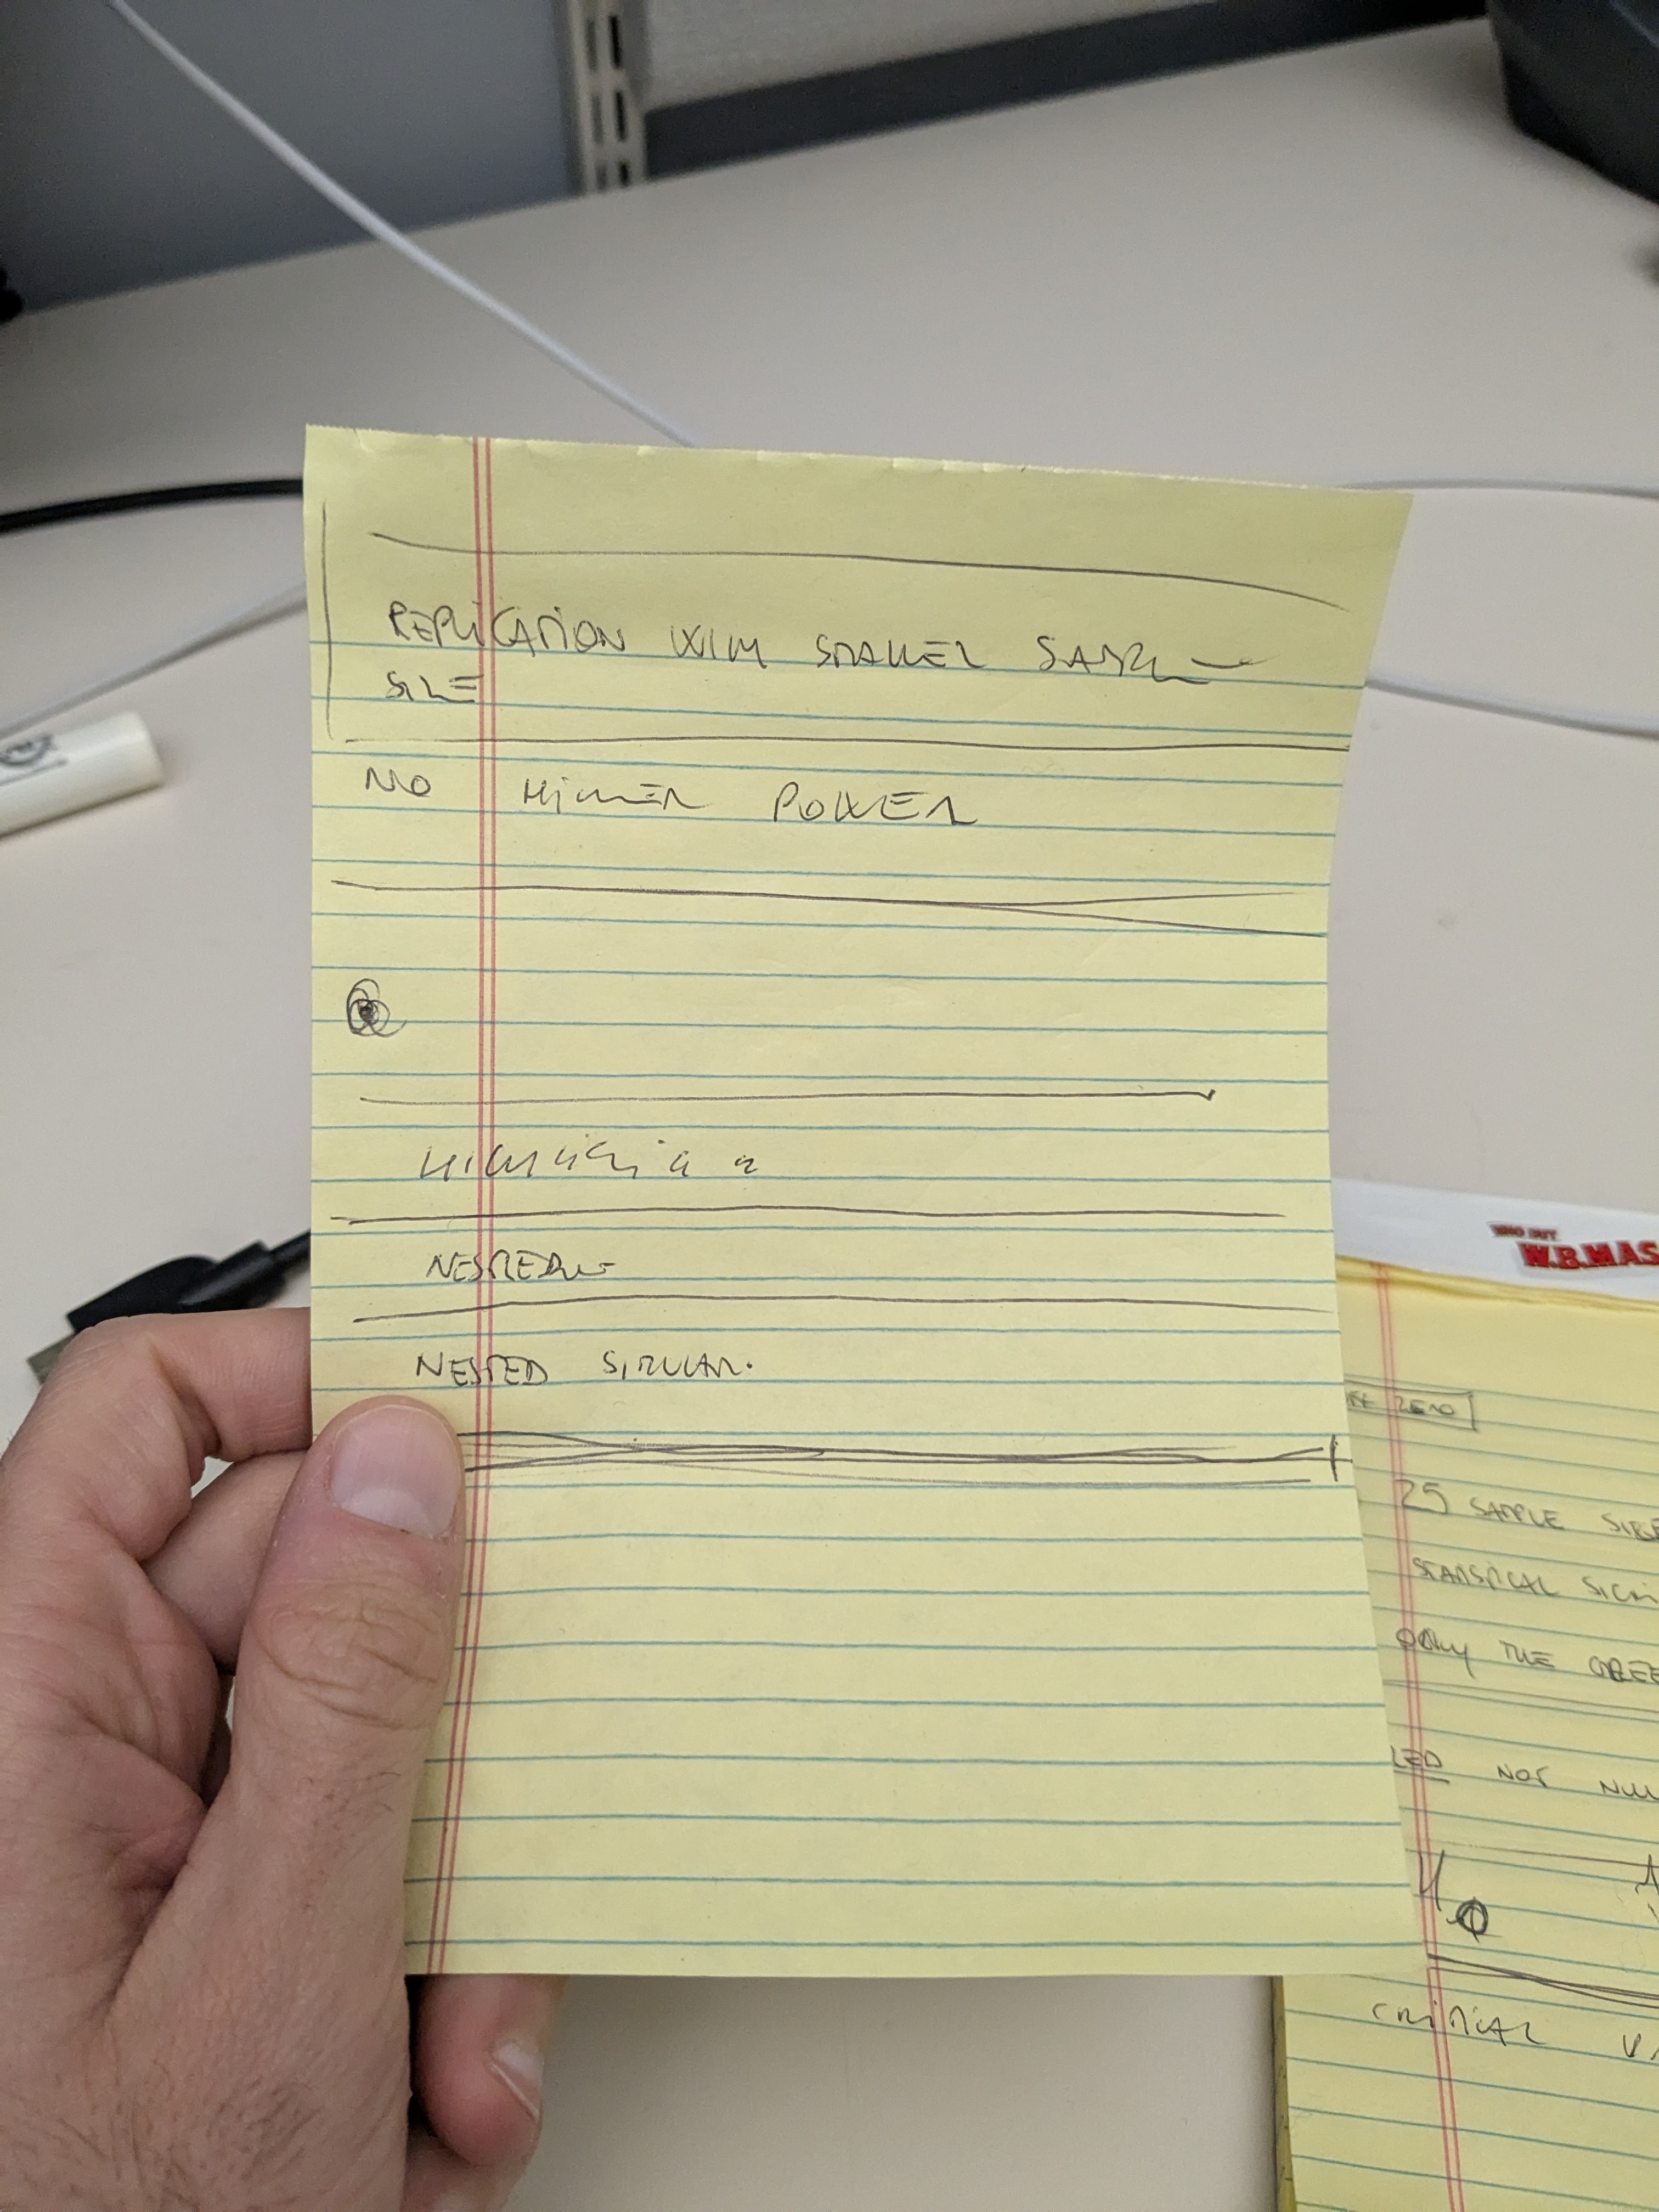 REPLICATION WITH SMALLER SAMPLE
SIZE
NO HIGHER POWER
NESTED SIMILAR.
WHO BUT
W.B.MAS
ZERO
25 SAMPLE SIZE
STATISTICAL SIGN
ONLY THE GREE
LED NOT NULL
H0
CRITICAL VA